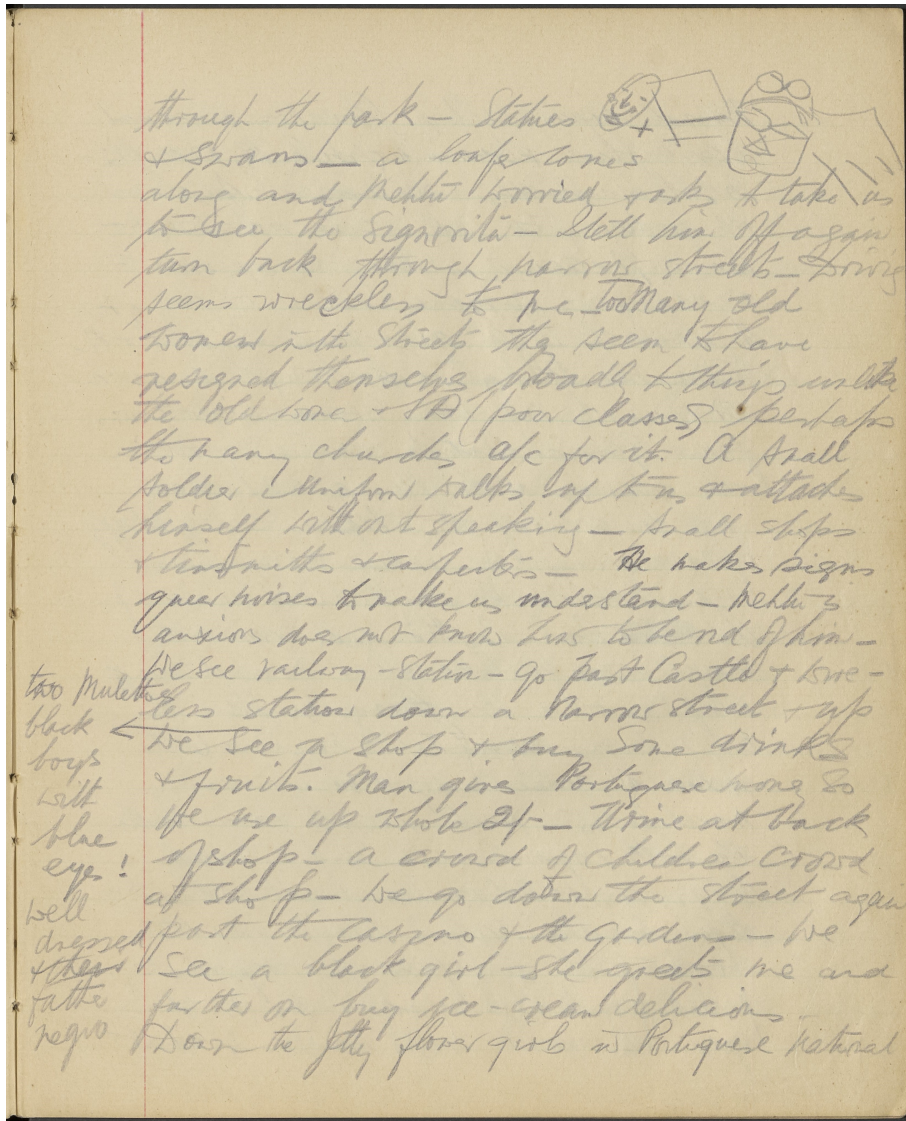 through the park – Statues
& Swans – a loafer comes
along and Mehti worried & asks to take us
to see the Signorita – I tell him off again
turn back through narrow streets – Driving
seems wreckless to me – too Many old
women in the Streets they seem to have
resigned themselves broadly to things unlike
the old women SA (poor classes) perhaps
the many churches a/c for it. A small
soldier uniform walks up to us & attaches
himself without speaking – small shops
& tinsmiths & carpenters – He makes signs
queer noises to make us understand – Mehti is
anxious does not know how to be rid of him –
We see railway-station – go past Castle & wire-
less station down a Narrow street & up
We See a shop & buy Some drinks
& fruits. Man gives Portuguese money So
We use up whole 2/- – Urine at back
of shop – a crowd of children crowd
at shop – We go down the street again
past the Casino & the Gardens – We
See a black girl – she greets me and
further on buy ice-cream delicious.
Down the Jetty flower girls in Portuguese National
two Mulatto
black
boys
with
blue
eyes!
well
dressed
& their
father
negro